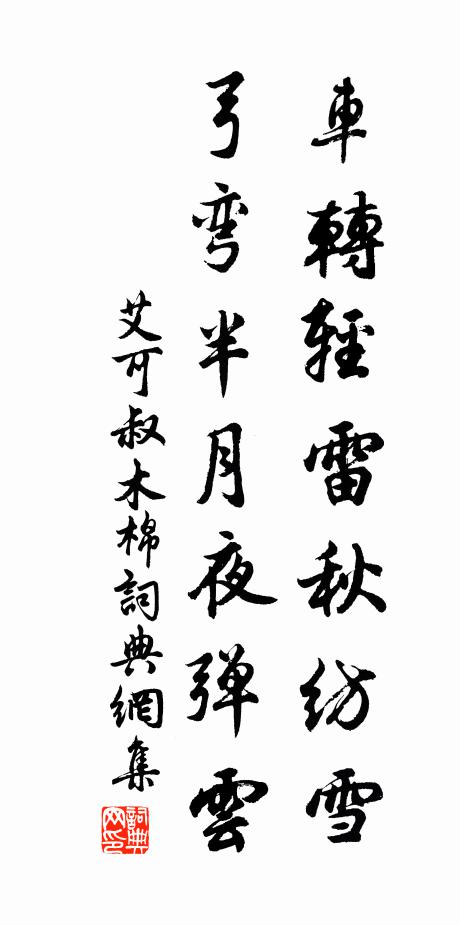 車轉輕雷秋紡雪
弓彎半月夜弹雲
艾可叔木棉詞典網集
詞典網印